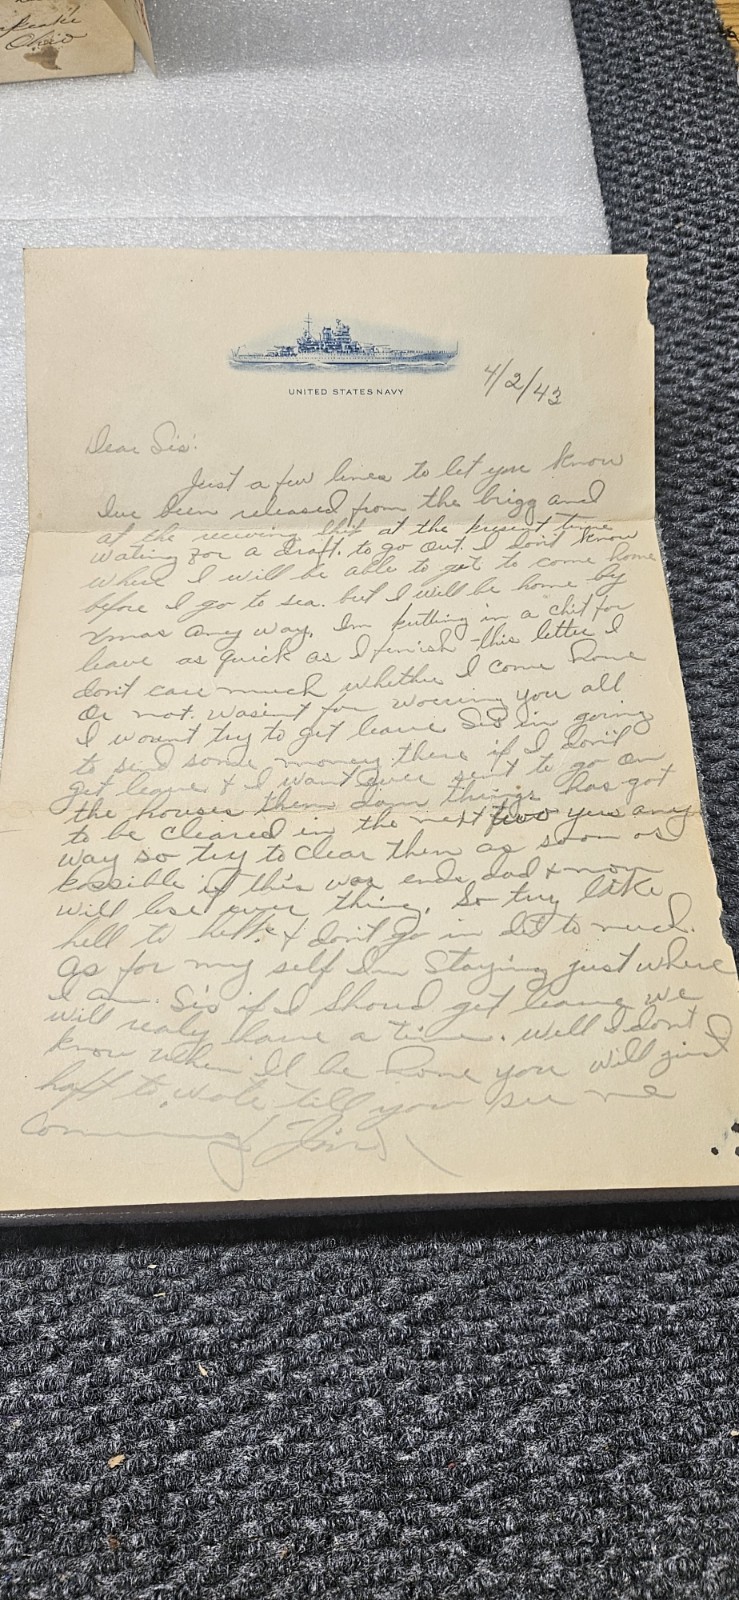 Ohio
UNITED STATES NAVY
4/2/43
Dear Sis:
Just a few lines to let you know
I've been released from the brigg and
at the reciving ship at the present time
wating for a draft. to go out. I don't know
when I will be able to get to come home
before I go to sea. but I will be home by
Xmas any way. Im putting in a chit for
leave as quick as I finish this letter I
don't care much whether I come home
or not. wasent for worring you all
I wount try to get leave Sis im going
to send some money there if I don't
get leave & I want ever sent to go on
the houses them dam things has got
to be cleared in the next two yrs any
way so try to clear them as soon as
possible if this war ends dad & mom
will lose ever thing. So try like
hell to help. & don't go in det to much.
as for my self Im Staying just where
I am. Sis if I should get leave we
will realy have a time. well I don't
know when Ill be home you will just
haft to wate till you see me
coming Jim